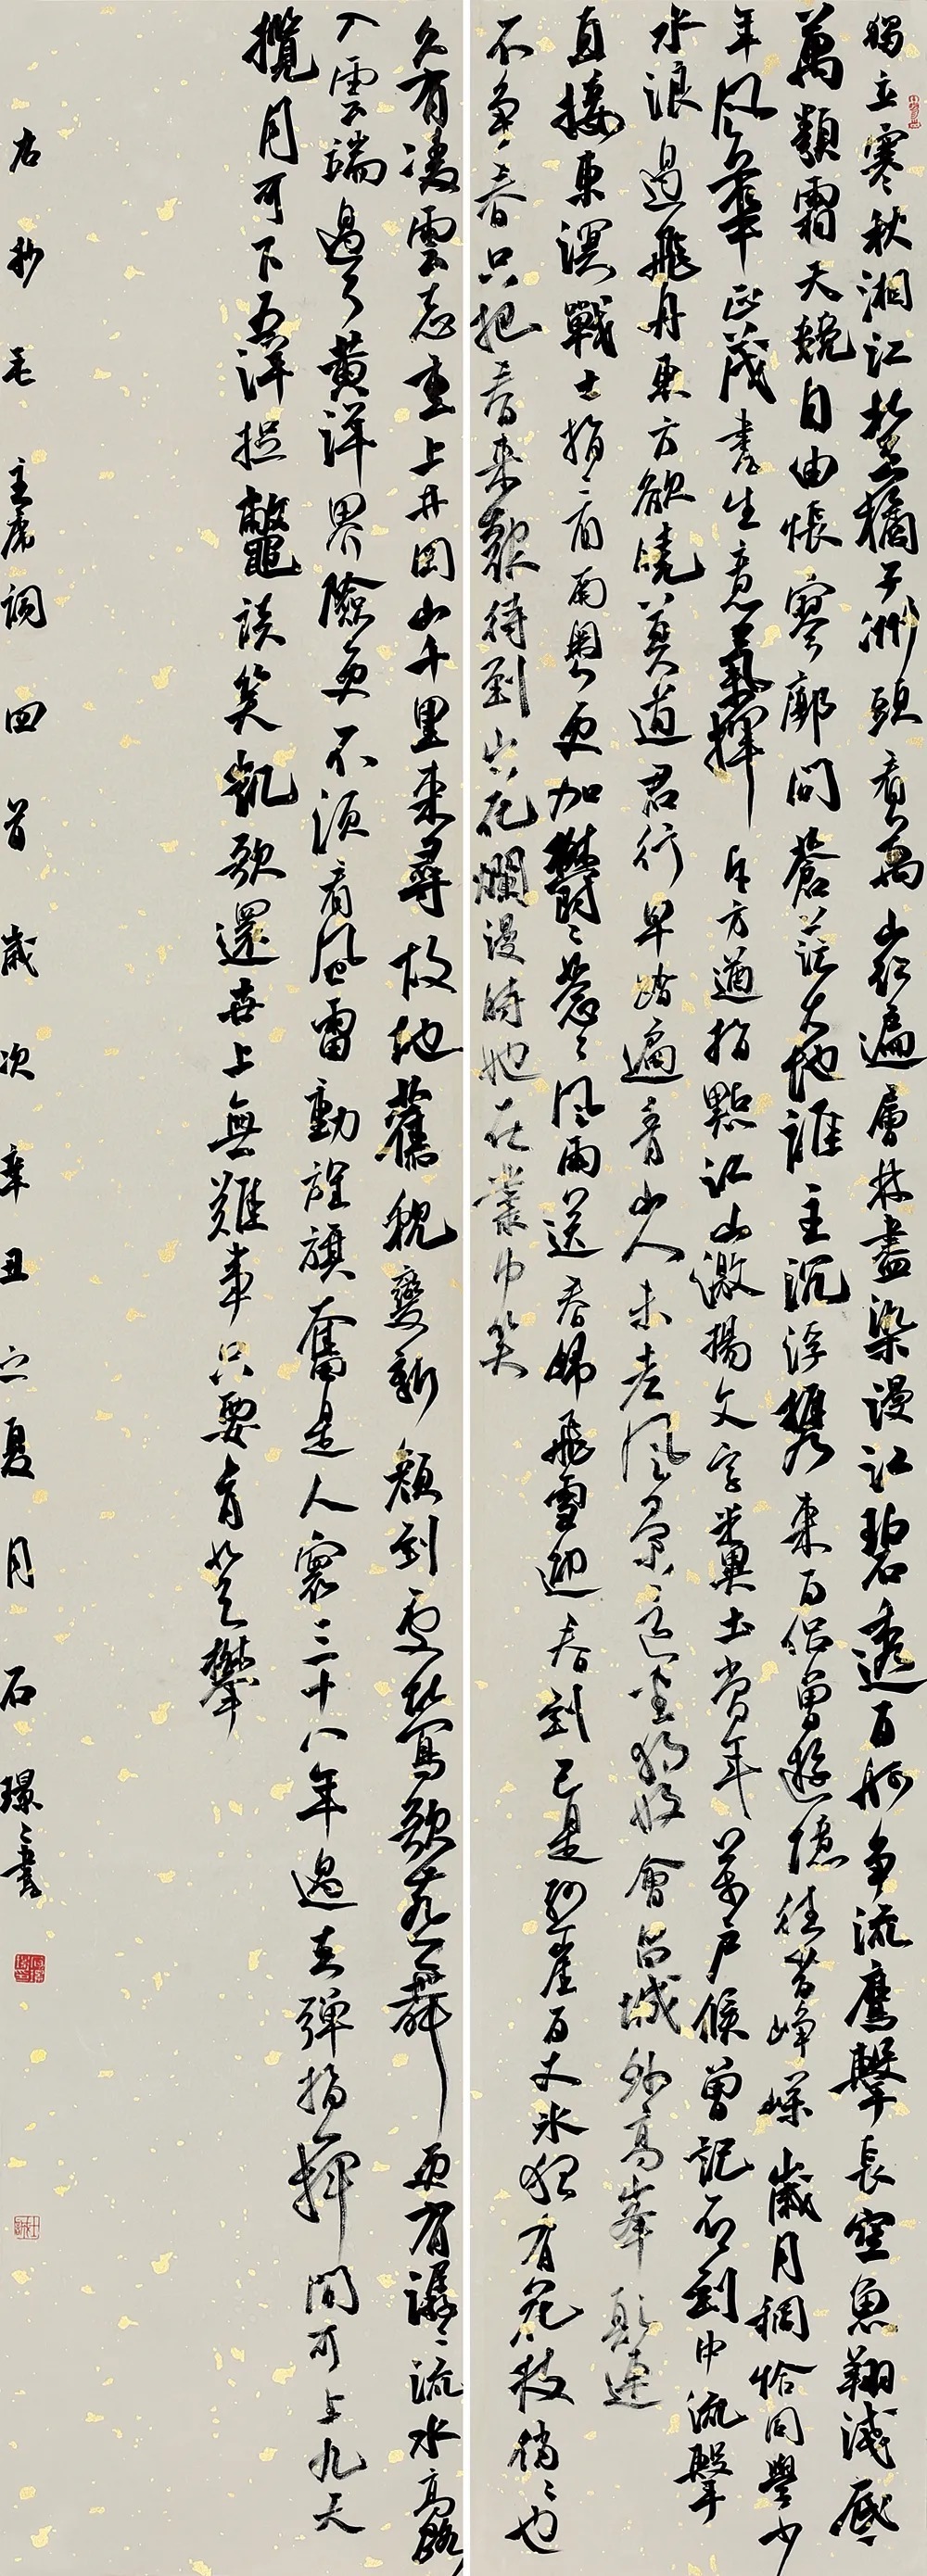 獨立寒秋湘江北去橘子洲頭看萬山紅遍層林盡染漫江碧透百舸争流鷹擊長空魚翔淺底
萬類霜天競自由悵寥廓問蒼茫大地誰主沉浮攜來百侣曾遊憶往昔崢嶸歲月稠恰同學少
年風華正茂書生意氣揮斥方遒指點江山激揚文字糞土當年萬戶侯曾記否到中流擊
水浪遏飛舟東方欲曉莫道君行早踏遍青山人未老風景這邊獨好會昌城外高峯顛連
直接東溟戰士指〻看南粤更加鬱〻葱〻風雨送春歸飛雪迎春到已是懸崖百丈冰猶有花枝俏〻也
不争春只把春來報待到山花爛漫時她在叢中笑
久有凌雲志重上井岡山千里來尋故地舊貌變新顔到處鶯歌燕舞更有潺〻流水高路
入雲端過了黄洋界險處不須看風雷動旌旗奮是人寰三十八年過去彈指一揮間可上九天
攬月可下五洋捉鱉談笑凱歌還世上無難事只要肯登攀
右抄毛主席詞四首歲次辛丑之夏月石璟〻書